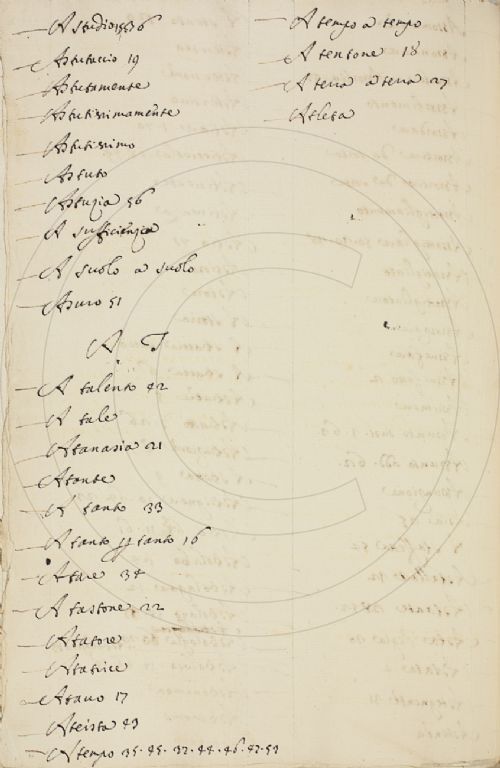 A studio 36
Astutaccio 19
Astutamente
Astutissimamente
Astutissimo
Astuto
Astuzia 56
A sufficienzia
A suolo a suolo
Asuro 51
A T
A talento 42
A tale
Atanasia 21
Atante
A tanto 33
A tanto p tanto 16
Atare 34
A tastone 22
Atatore
Atatrice
Atauo 17
Ateista 43
A tempo 35. 45. 32. 44. 46. 47. 51
A tempo a tempo
A tentone 18
A terra a terra 27
Atleta